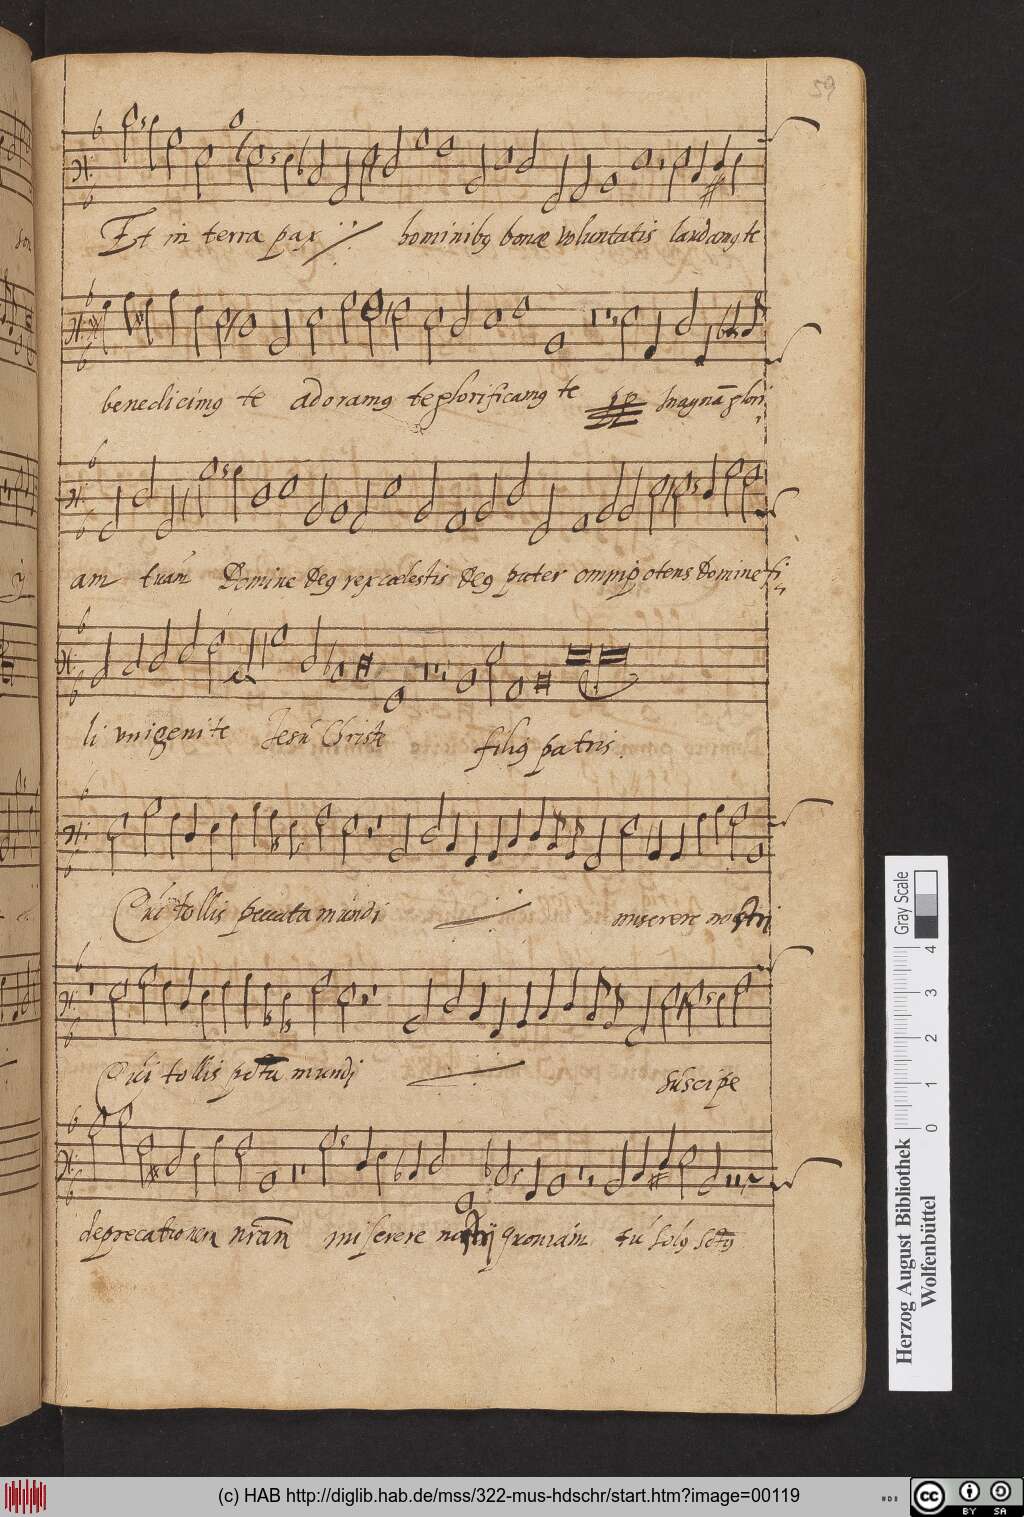 59
Et in terra pax ij hominibꝰ bonæ voluntatis laudamꝰ te
benedicimꝰ te adoramꝰ te glorificamꝰ te magnā glori
am tuam Domine deꝰ rex cælestis deꝰ pater omnipotens domine fi
li vnigenite Jesu Christe filiꝰ patris.
Qui tollis peccata mundi miserere nostri
Qui tollis mundi suscipe
deprecationem nram miserere nostri quoniam tu solꝰ sctꝰ
Herzog August Bibliothek
Wolfenbüttel
0 1 2 3 4
Gray Scale
(c) HAB http://diglib.hab.de/mss/322-mus-hdschr/start.htm?image=00119
cc BY SA